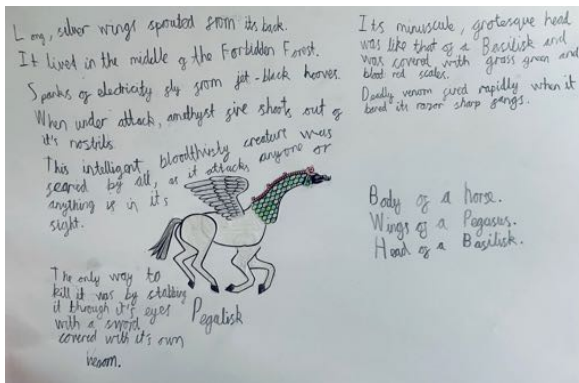 Long, silver wings sprouted from its back.
It lived in the middle of the Forbidden Forest.
Sparks of electricity fly from jet-black hooves.
When under attack, amethyst fire shoots out of
it's nostrils.
This intelligent, bloodthirsty creature was
feared by all, as it attacks anyone or
anything is in it's
sight.
The only way to
kill it was by stabbing
it through it's eyes
with a sword
covered with it's own
venom.
Pegalisk
Its minuscule, grotesque head
was like that of a Basilisk and
was covered with grass green and
blood red scales.
Deadly venom fired rapidly when it
bared its razor sharp fangs.
Body of a horse.
Wings of a Pegasus.
Head of a Basilisk.